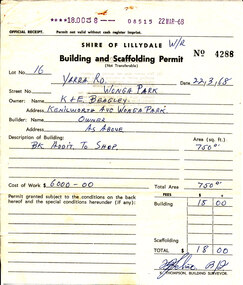 ****18.00S 8 — 08515 22 MAR-68
OFFICIAL RECEIPT. Permit not valid without cash register imprint.
SHIRE OF LILLYDALE W/R
Building and Scaffolding Permit Nº 4288
(Not Transferable)
Lot No. 16
YARRA RD. Date 22/3/68
Street No. WONGA PARK
Owner: Name K & E BEAGLEY.
Address KENILWORTH AVE WONGA PARK.
Builder: Name OWNER
Address AS ABOVE
Description of Building: Area (sq. ft.)
BK. ADDIT. TO SHOP. 750
Cost of Work $ 6000-00 Total Area 750
Permit granted subject to the conditions on the back hereof and the special conditions hereunder (if any):
FEES $
Building 18 00
Scaffolding
TOTAL $ 18 00
THOMPSON, BUILDING SURVEYOR.